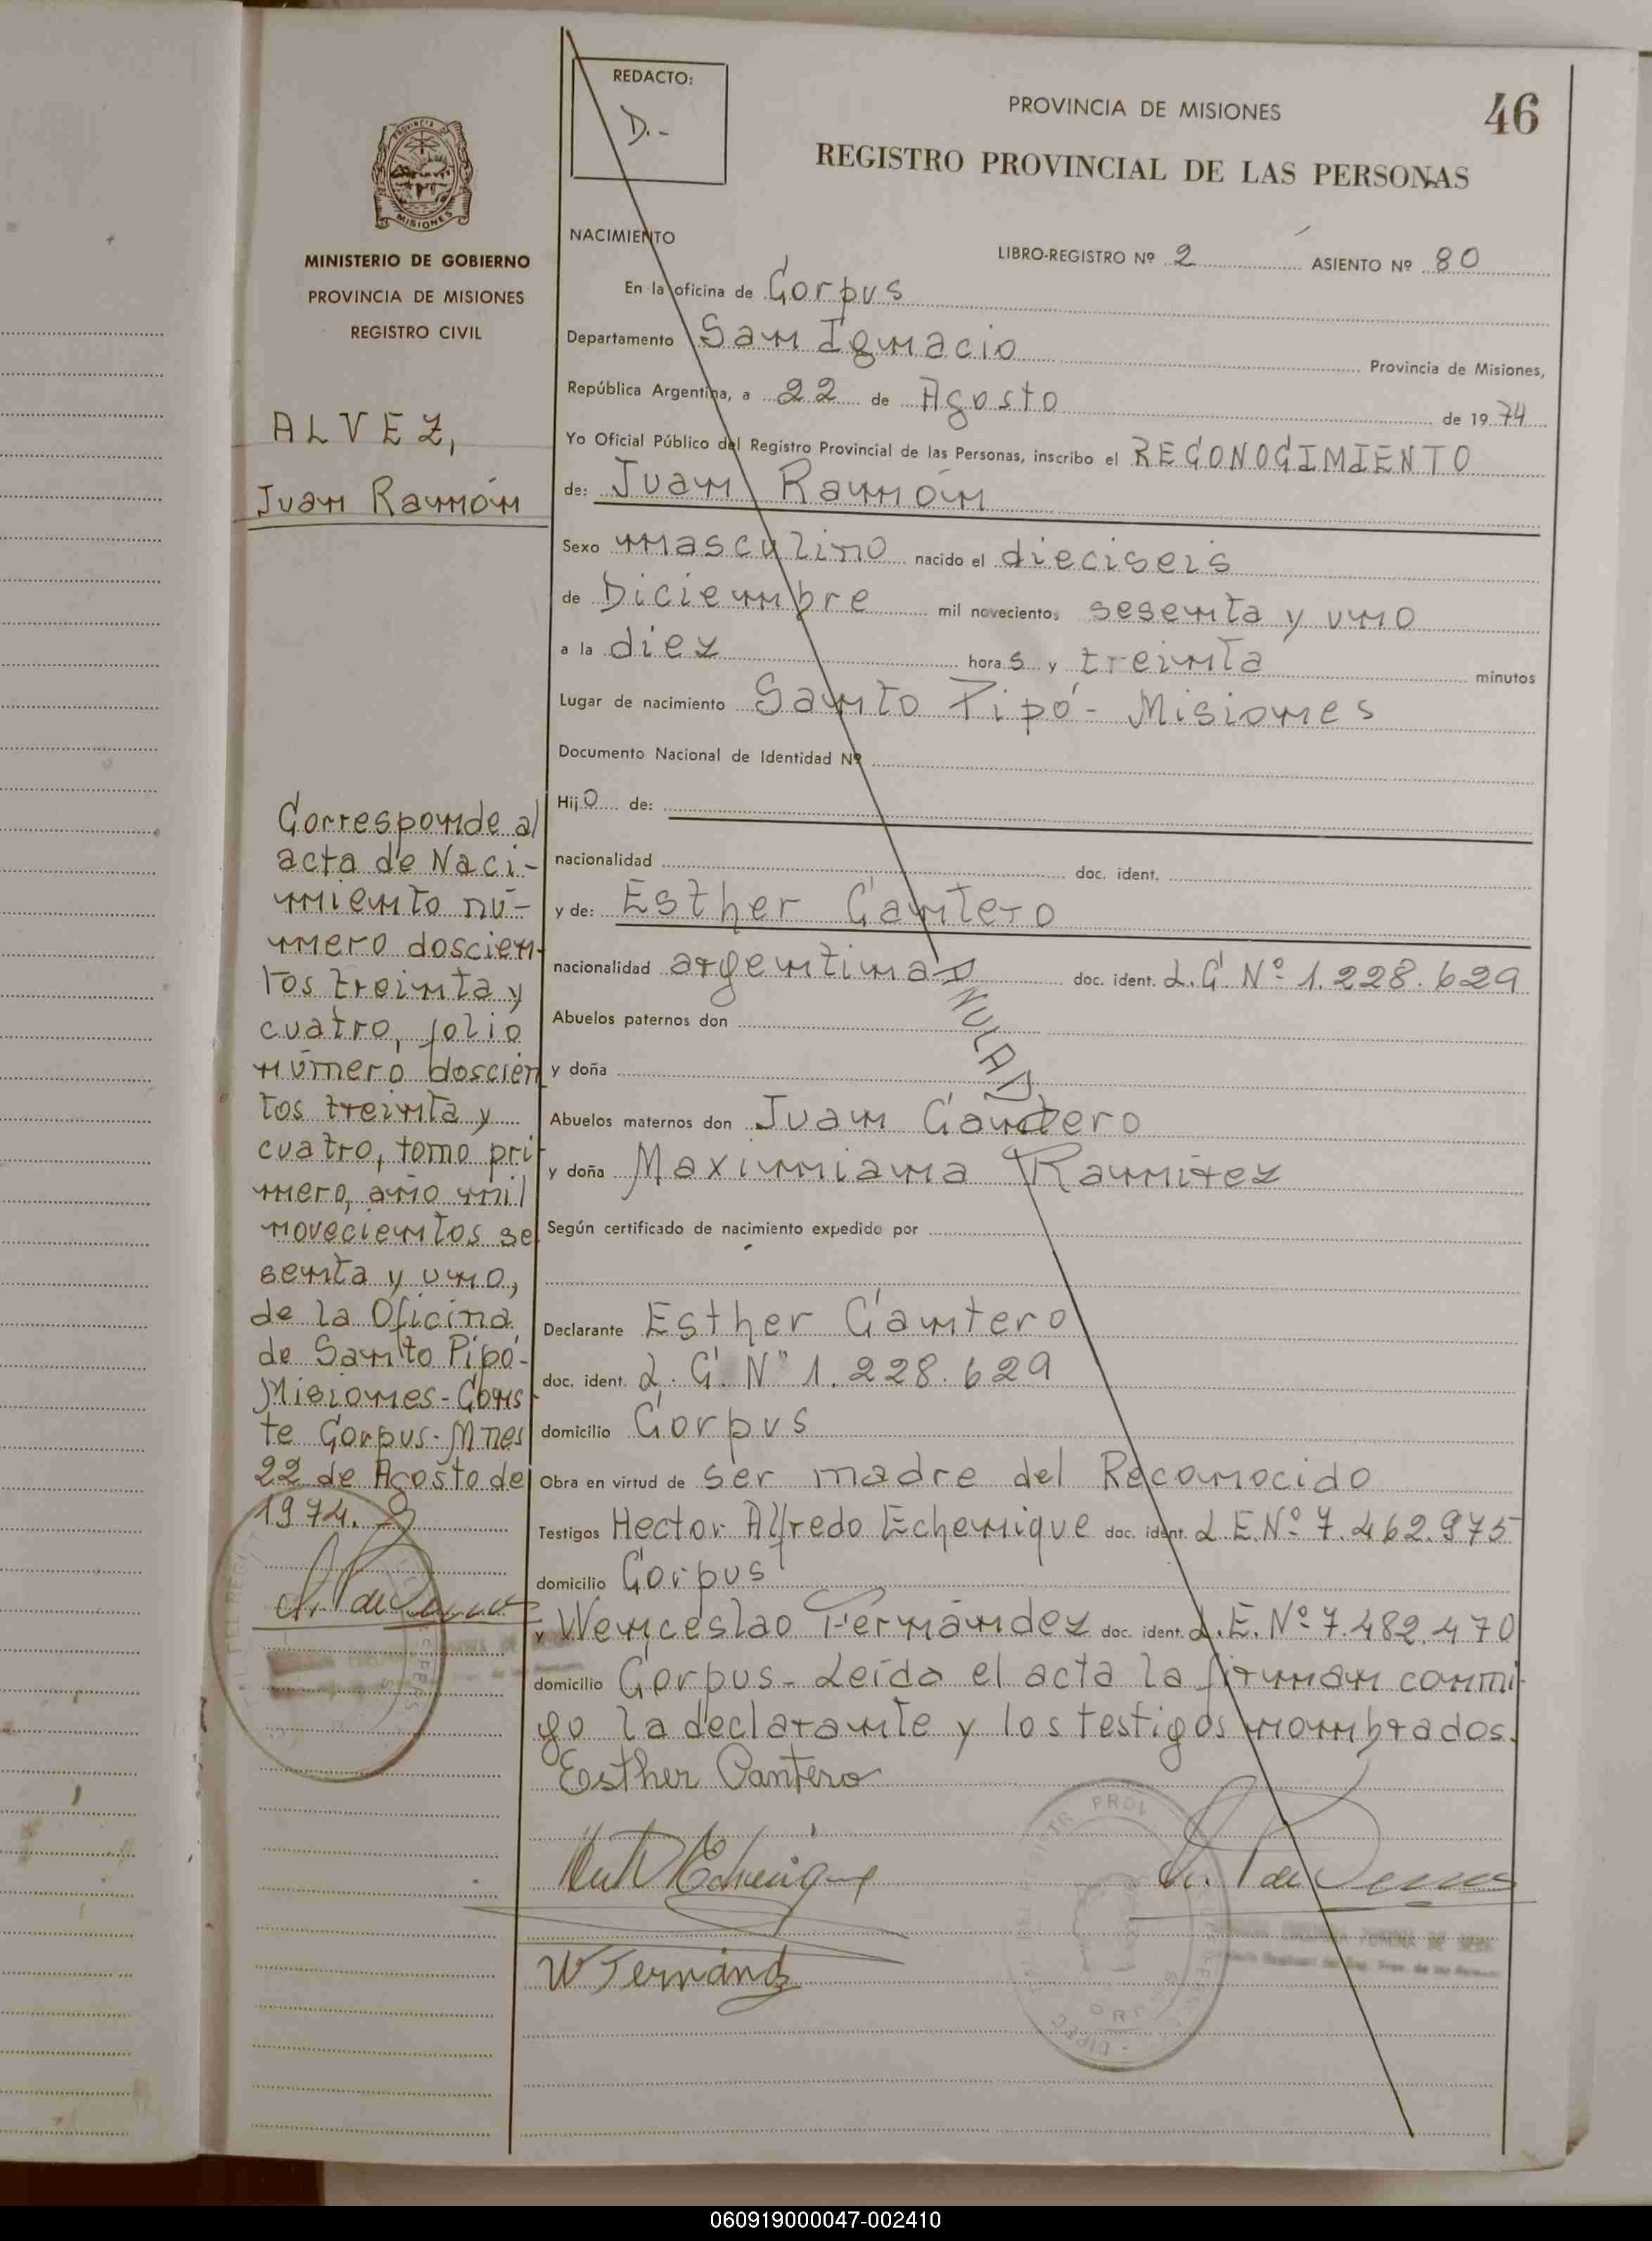 REDACTO:
D.-
PROVINCIA DE MISIONES
46
REGISTRO PROVINCIAL DE LAS PERSONAS
PROVINCIA DE
MISIONES
MINISTERIO DE GOBIERNO
PROVINCIA DE MISIONES
REGISTRO CIVIL
ALVEZ,
Juan Ramón
NACIMIENTO
LIBRO-REGISTRO Nº 2 ASIENTO Nº 80
En la oficina de Corpus
Departamento San Ignacio Provincia de Misiones,
República Argentina, a 22 de Agosto de 1974
Yo Oficial Público del Registro Provincial de las Personas, inscribo el RECONOCIMIENTO
de: Juan Ramón
Sexo masculino nacido el dieciseis
de Diciembre mil novecientos sesenta y uno
a la diez horas y treinta minutos
Lugar de nacimiento Santo Pipó - Misiones
Documento Nacional de Identidad Nº
Hijo de:
nacionalidad doc. ident.
y de: Esther Cantero
nacionalidad argentina doc. ident. L.C. Nº 1.228.629
ANULADO
Abuelos paternos don
y doña
Abuelos maternos don Juan Cantero
y doña Maximiana Ramirez
Según certificado de nacimiento expedido por
Declarante Esther Cantero
doc. ident. L.C. Nº 1.228.629
domicilio Corpus
Obra en virtud de ser madre del Reconocido
Testigos Hector Alfredo Echenique doc. ident. L.E. Nº 7.462.975
domicilio Corpus
y Wenceslao Fernández doc. ident. L.E. Nº 7.482.470
domicilio Corpus - Leída el acta la firman conmi-
go la declarante y los testigos nombrados.
Esther Cantero
W Fernández
Corresponde al
acta de Naci-
miento nú-
mero doscien-
tos treinta y
cuatro, folio
número doscien
tos treinta y
cuatro, tomo pri-
mero, año mil
novecientos se
senta y uno,
de la Oficina
de Santo Pipó-
Misiones - Cons-
te Corpus - Mnes
22 de Agosto de
1974.
060919000047-002410